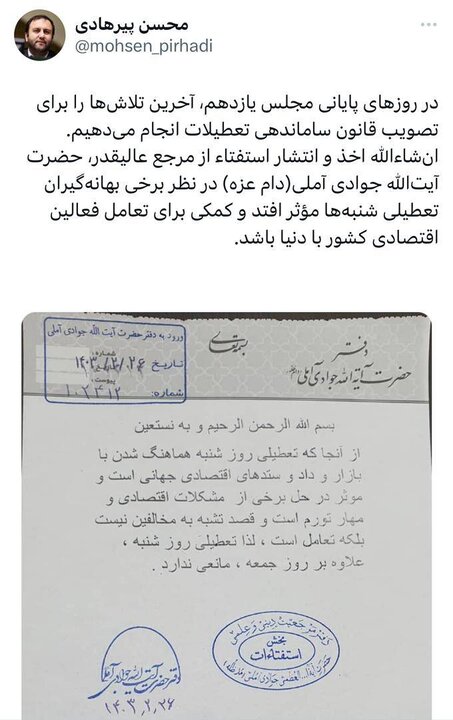 محسن پیرهادی
@mohsen_pirhadi
در روزهای پایانی مجلس یازدهم، آخرین تلاش‌ها را برای
تصویب قانون ساماندهی تعطیلات انجام می‌دهیم.
ان‌شاءالله اخذ و انتشار استفتاء از مرجع عالیقدر، حضرت
آیت‌الله جوادی آملی(دام عزه) در نظر برخی بهانه‌گیران
تعطیلی شنبه‌ها مؤثر افتد و کمکی برای تعامل فعالین
اقتصادی کشور با دنیا باشد.
ورود به دفتر حضرت آیت الله جوادی آملی
تاریخ ۱۴۰۳/۲/۲۶
شماره: ۱۰۲۴۱۲
بسمه تعالی
دفتر
حضرت آیة الله جوادی آملی
بسم الله الرحمن الرحیم و به نستعین
از آنجا که تعطیلی روز شنبه هماهنگ شدن با
بازار و داد و ستدهای اقتصادی جهانی است و
موثر در حل برخی از مشکلات اقتصادی و
مهار تورم است و قصد تشبه به مخالفین نیست
بلکه تعامل است ، لذا تعطیلی روز شنبه ،
علاوه بر روز جمعه ، مانعی ندارد .
دفتر مرجعیت دینی و علمی
بخش
استفتاءات
دفتر حضرت آیت الله جوادی آملی
۱۴۰۳,۲,۲۶